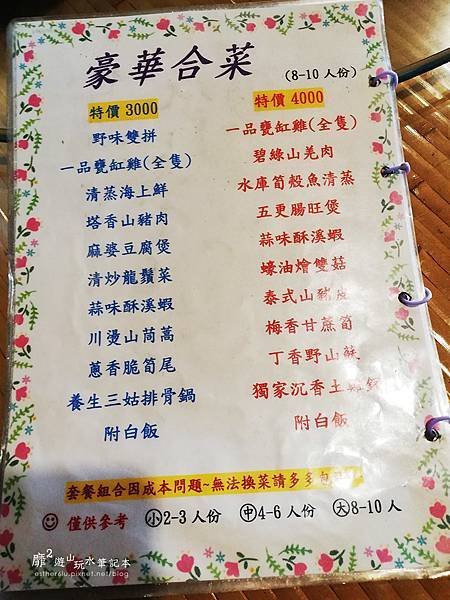 豪華合菜
(8-10 人份)
特價 3000
野味雙拼
一品甕缸雞(全隻)
清蒸海上鮮
塔香山豬肉
麻婆豆腐煲
清炒龍鬚菜
蒜味酥溪蝦
川燙山茼萵
蔥香脆筍尾
養生三姑排骨鍋
附白飯
特價 4000
一品甕缸雞(全隻)
碧綠山羌肉
水庫筍殼魚清蒸
五更腸旺煲
蒜味酥溪蝦
蠔油燴雙菇
泰式山豬皮
梅香甘蔗筍
丁香野山蘇
獨家沉香土雞鍋
附白飯
套餐組合因成本問題~無法換菜請多多包
僅供參考 小2-3人份 中4-6 人份 大8-10 人
靡² 遊山玩水筆記本
esther6lu.pixnet.net/blog